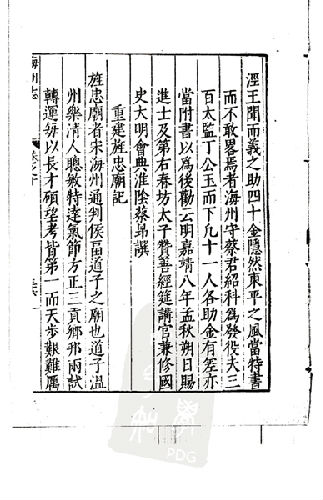 涇王聞而義之助四十金隱然東平之風當特書
而不敢畧焉者海州守蔡君紹科爲發役夫三
百太監丁公玉而下九十一人各助金有差亦
當附書以爲後勸云明嘉靖八年孟秋朔日賜
進士及第右春坊太子贊善經筵講官兼修國
史大明會典淮陰蔡昻撰
重建旌忠廟記
旌忠廟者宋海州通判侯畐道子之廟也道子溫
州樂清人聰敏特達氣節方正三貢鄉那兩試
轉運毎以長才碩望考皆第一而天步艱難厲
海州志
PDG